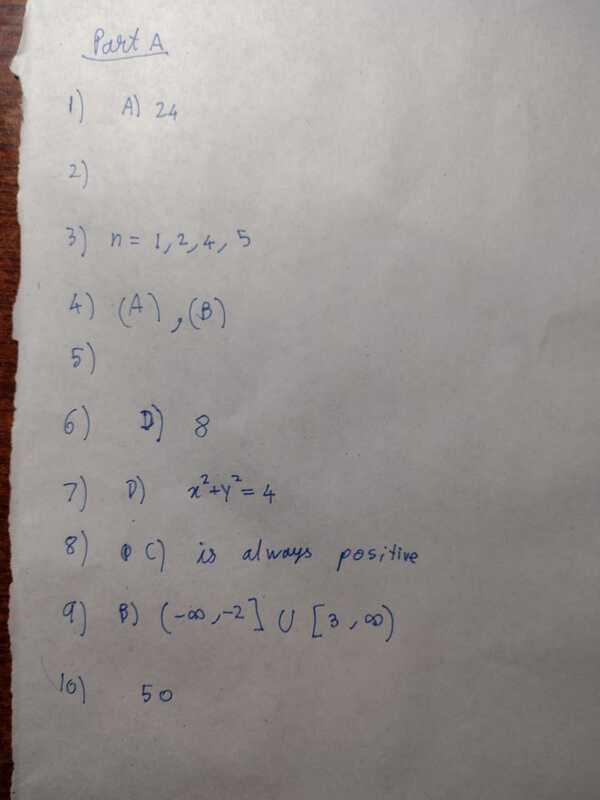 Part A
1) A) 24
2)
3) n = 1, 2, 4, 5
4) (A), (B)
5)
6) D) 8
7) D) x²+y² = 4
8) C) is always positive
9) B) (-∞, -2] ∪ [3, ∞)
10) 50